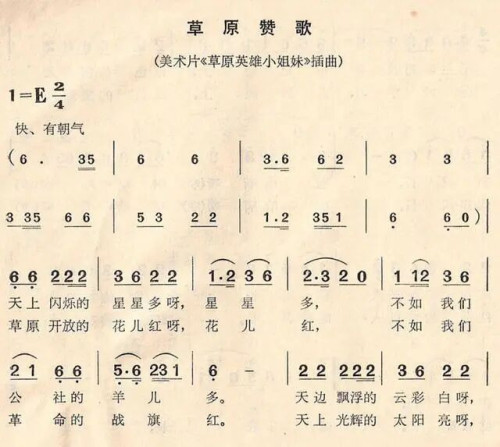 草原赞歌
(美术片《草原英雄小姐妹》插曲)
1=E 2/4
快、有朝气
(6. 35 | 6 6 | 3.6 6 2 | 3 3 |
3 35 6 6 | 5 3 2 2 | 1.2 351 | 6 6 0) |
6 6 222 | 3 6 2 2 | 1.2 3 6 | 2.3 2 0 | 1 12 3 6 |
天上 闪烁的 星星多呀, 星星 多, 不如 我们
草原 开放的 花儿红呀, 花儿 红, 不如 我们
2 1 6 | 5.6 231 | 6 - | 2 2 222 | 3 6 2 2 |
公社的 羊儿 多。 天边 飘浮的 云彩白呀,
革命的 战旗 红。 天上 光辉的 太阳亮呀,